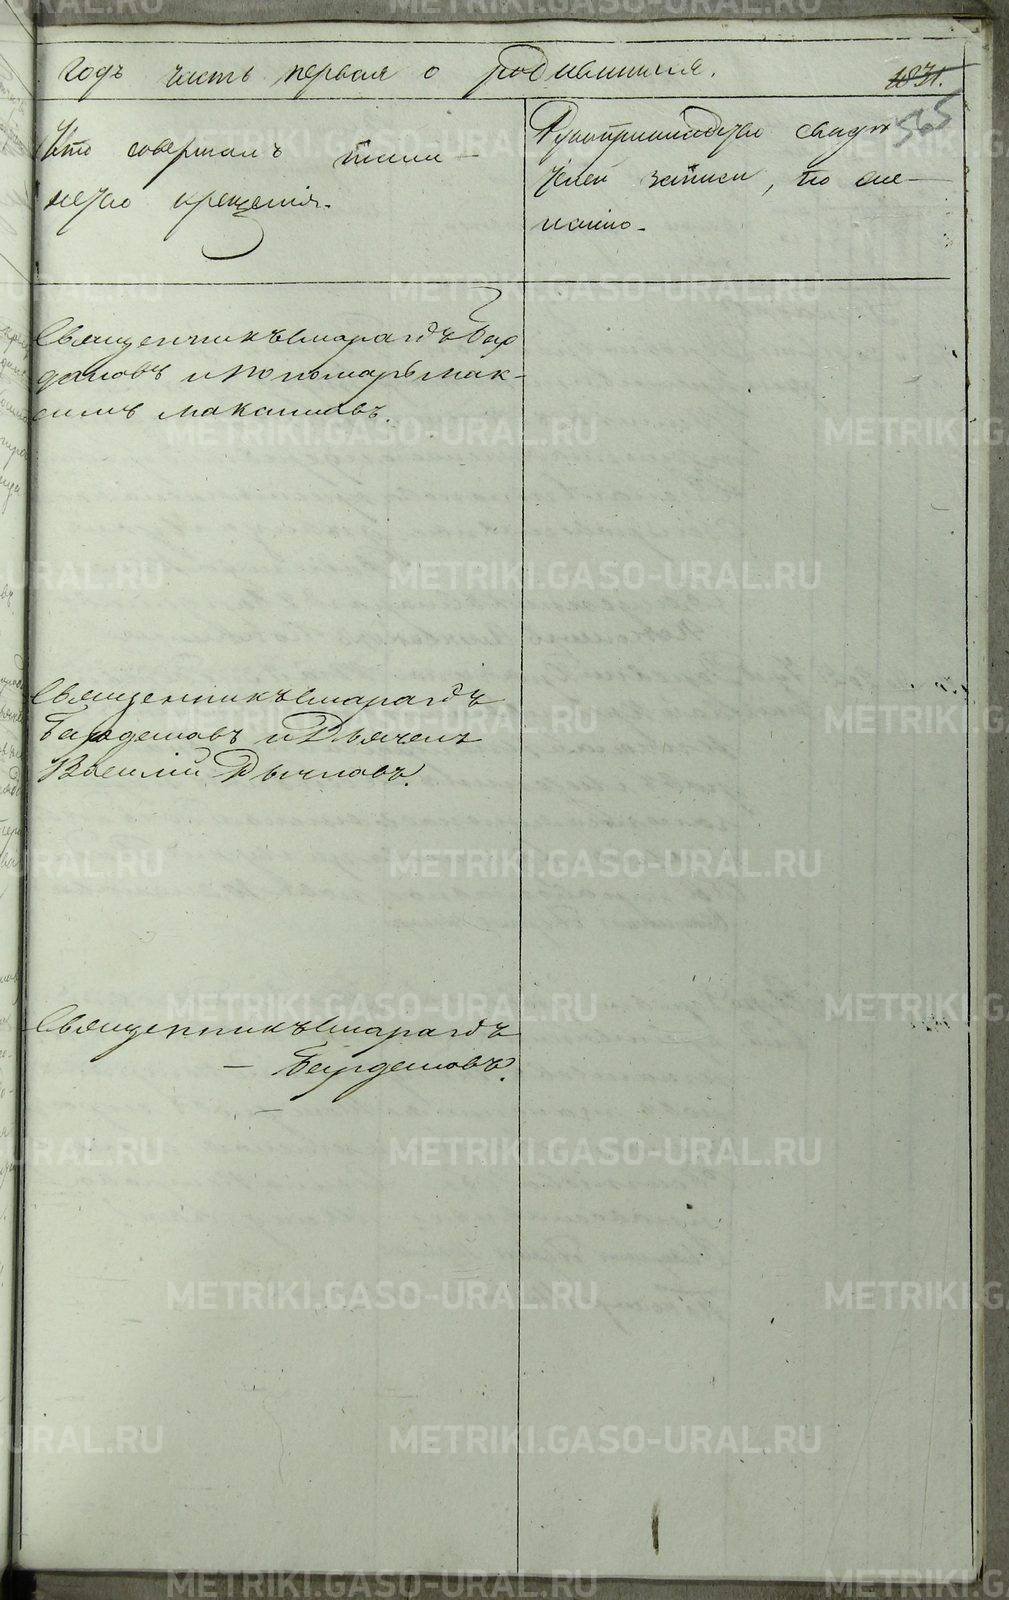 годъ часть первая о родившихся.
1831.
565
Кто совершалъ таин-
ство крещенiя.
Рукоприкладство свидѣ
телей записи, по же-
ланiю.
Священникъ Смарагдъ Бар
дашовъ и Пономарь Мак-
симъ Макашовъ.
Священникъ Смарагдъ
Бардашовъ и Дьячекъ
Василiй
Священникъ Смарагдъ
— Бардашовъ.
METRIKI.GASO-URAL.RU